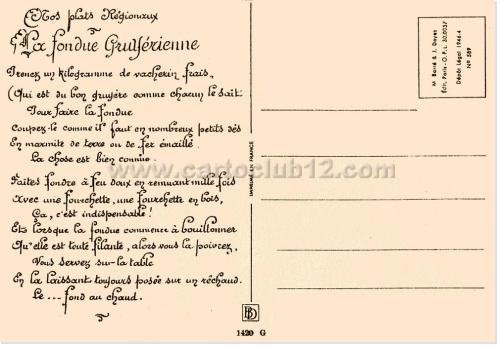 Nos plats Régionaux
La Fondue Gruyérienne
Prenez un kilogramme de vacherin frais,
(Qui est du bon gruyère comme chacun le sait
Pour faire la fondue
Coupez-le comme il faut en nombreux petits dés
En marmite de terre ou de fer émaillé
La chose est bien connue.
Faites fondre à feu doux en remuant mille fois
Avec une fourchette, une fourchette en bois,
Ça, c'est indispensable!
Ets lorsque la fondue commence à bouillonner
Qu'elle est toute filante, alors vous la poivrez,
Vous servez sur la table
En la laissant toujours posée sur un réchaud.
Le --- fond au chaud.
IMPRIMÉ EN FRANCE
M. Barré & J. Dayez
Édit. Paris - O.P.L. 30.0057
Dépôt Légal 1946-4
No 589
www.cartoclub12.com
BD
1420 G